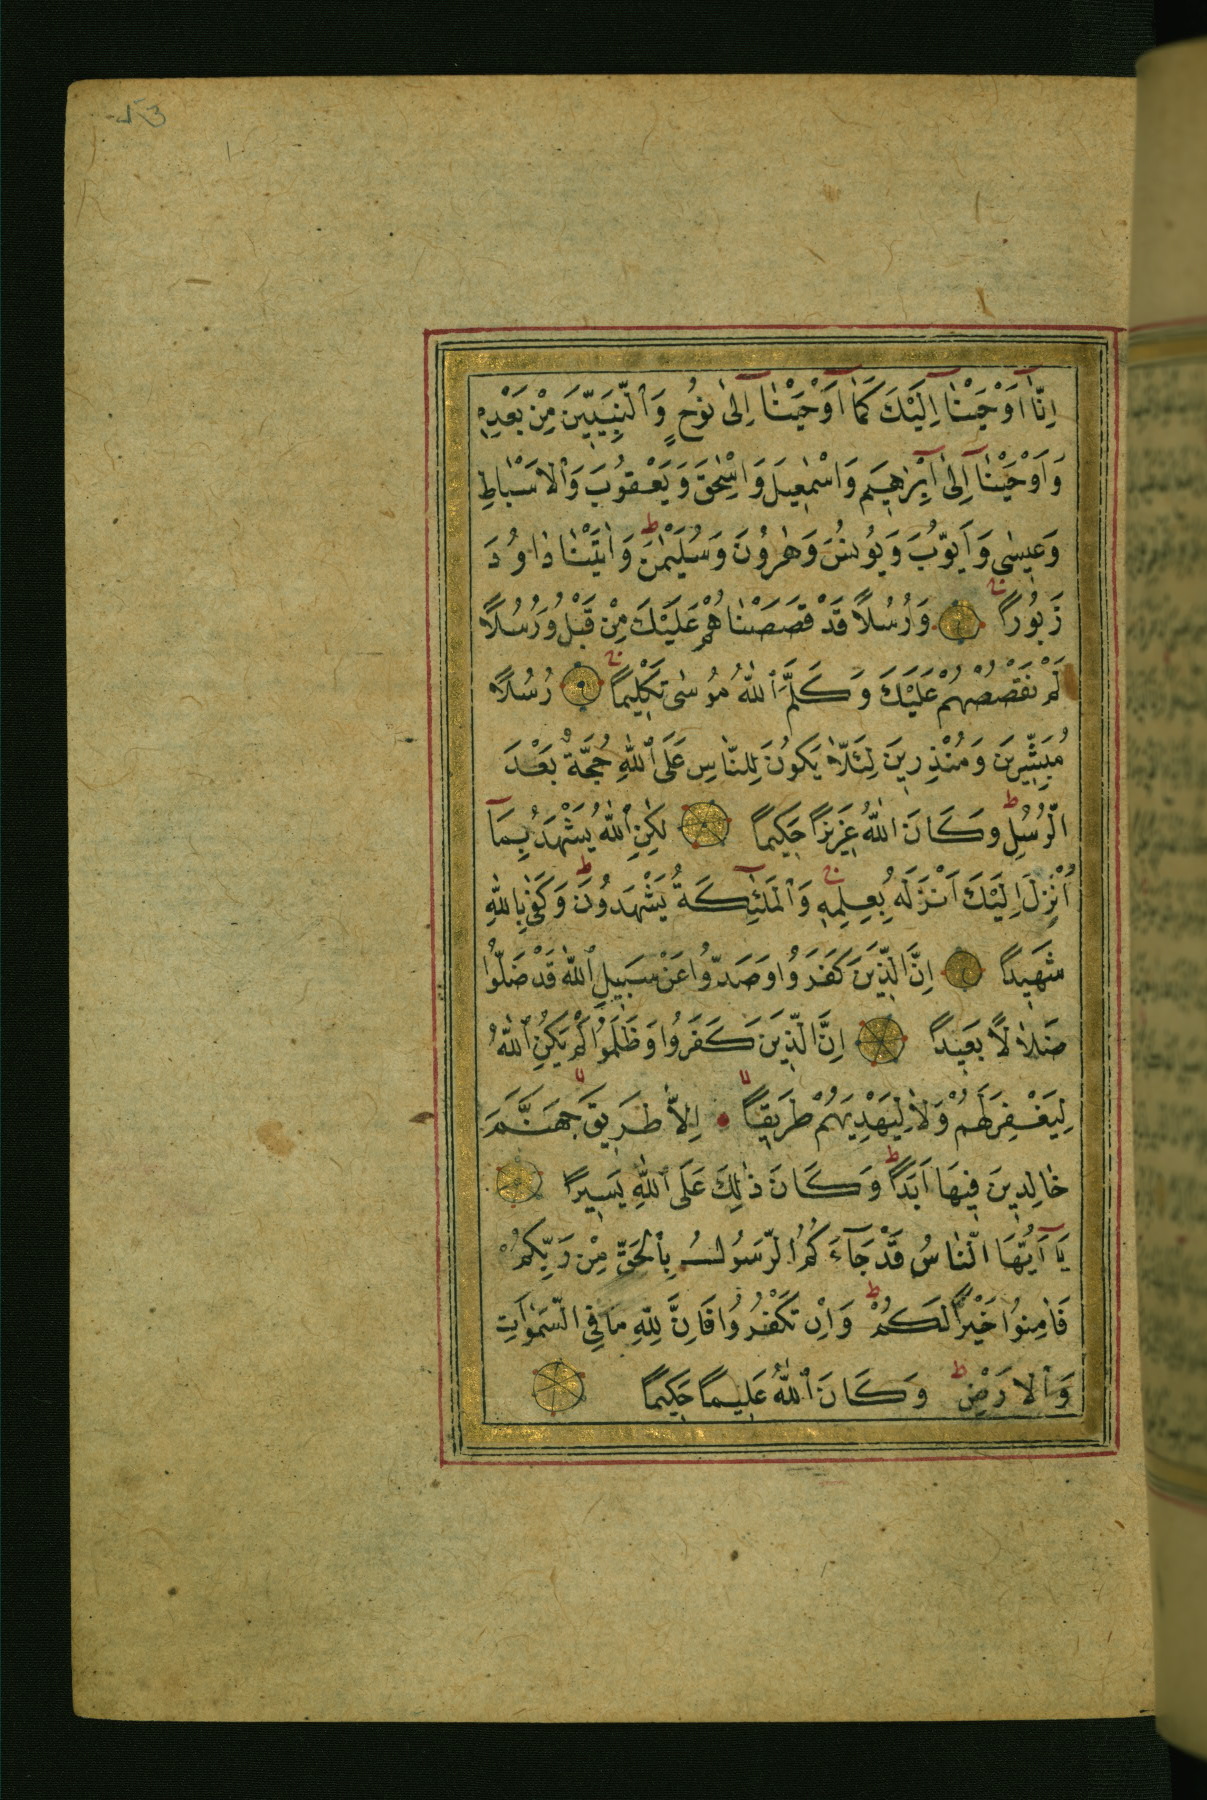 اِنَّٓا اَوْحَيْنَٓا اِلَيْكَ كَمَٓا اَوْحَيْنَٓا اِلٰى نُوحٍ وَالنَّبِيّٖنَ مِنْ بَعْدِهٖ
وَاَوْحَيْنَٓا اِلٰٓى اِبْرٰهٖيمَ وَاِسْمٰعٖيلَ وَاِسْحٰقَ وَيَعْقُوبَ وَالْاَسْبَاطِ
وَعٖيسٰى وَاَيُّوبَ وَيُونُسَ وَهٰرُونَ وَسُلَيْمٰنَ ط وَاٰتَيْنَا دَاوُدَ
زَبُورًا وَرُسُلًا قَدْ قَصَصْنَاهُمْ عَلَيْكَ مِنْ قَبْلُ وَرُسُلًا
لَمْ نَقْصُصْهُمْ عَلَيْكَ وَكَلَّمَ اللّٰهُ مُوسٰى تَكْلٖيمًا رُسُلًا
مُبَشِّرٖينَ وَمُنْذِرٖينَ لِئَلَّا يَكُونَ لِلنَّاسِ عَلَى اللّٰهِ حُجَّةٌ بَعْدَ
الرُّسُلِ ط وَكَانَ اللّٰهُ عَزٖيزًا حَكٖيمًا لٰكِنِ اللّٰهُ يَشْهَدُ بِمَٓا
اُنْزِلَ اِلَيْكَ اَنْزَلَهُ بِعِلْمِهٖ وَالْمَلٰٓئِكَةُ يَشْهَدُونَ ط وَكَفٰى بِاللّٰهِ
شَهٖيدًا اِنَّ الَّذٖينَ كَفَرُوا وَصَدُّوا عَنْ سَبٖيلِ اللّٰهِ قَدْ ضَلُّوا
ضَلَالًا بَعٖيدًا اِنَّ الَّذٖينَ كَفَرُوا وَظَلَمُوا لَمْ يَكُنِ اللّٰهُ
لِيَغْفِرَ لَهُمْ وَلَا لِيَهْدِيَهُمْ طَرٖيقًا لا اِلَّا طَرٖيقَ جَهَنَّمَ
خَالِدٖينَ فٖيهَا اَبَدًا ط وَكَانَ ذٰلِكَ عَلَى اللّٰهِ يَسٖيرًا
يَٓا اَيُّهَا النَّاسُ قَدْ جَٓاءَكُمُ الرَّسُولُ بِالْحَقِّ مِنْ رَبِّكُمْ
فَاٰمِنُوا خَيْرًا لَكُمْ ط وَاِنْ تَكْفُرُوا فَاِنَّ لِلّٰهِ مَا فِي السَّمٰوَاتِ
وَالْاَرْضِ ط وَكَانَ اللّٰهُ عَلٖيمًا حَكٖيمًا